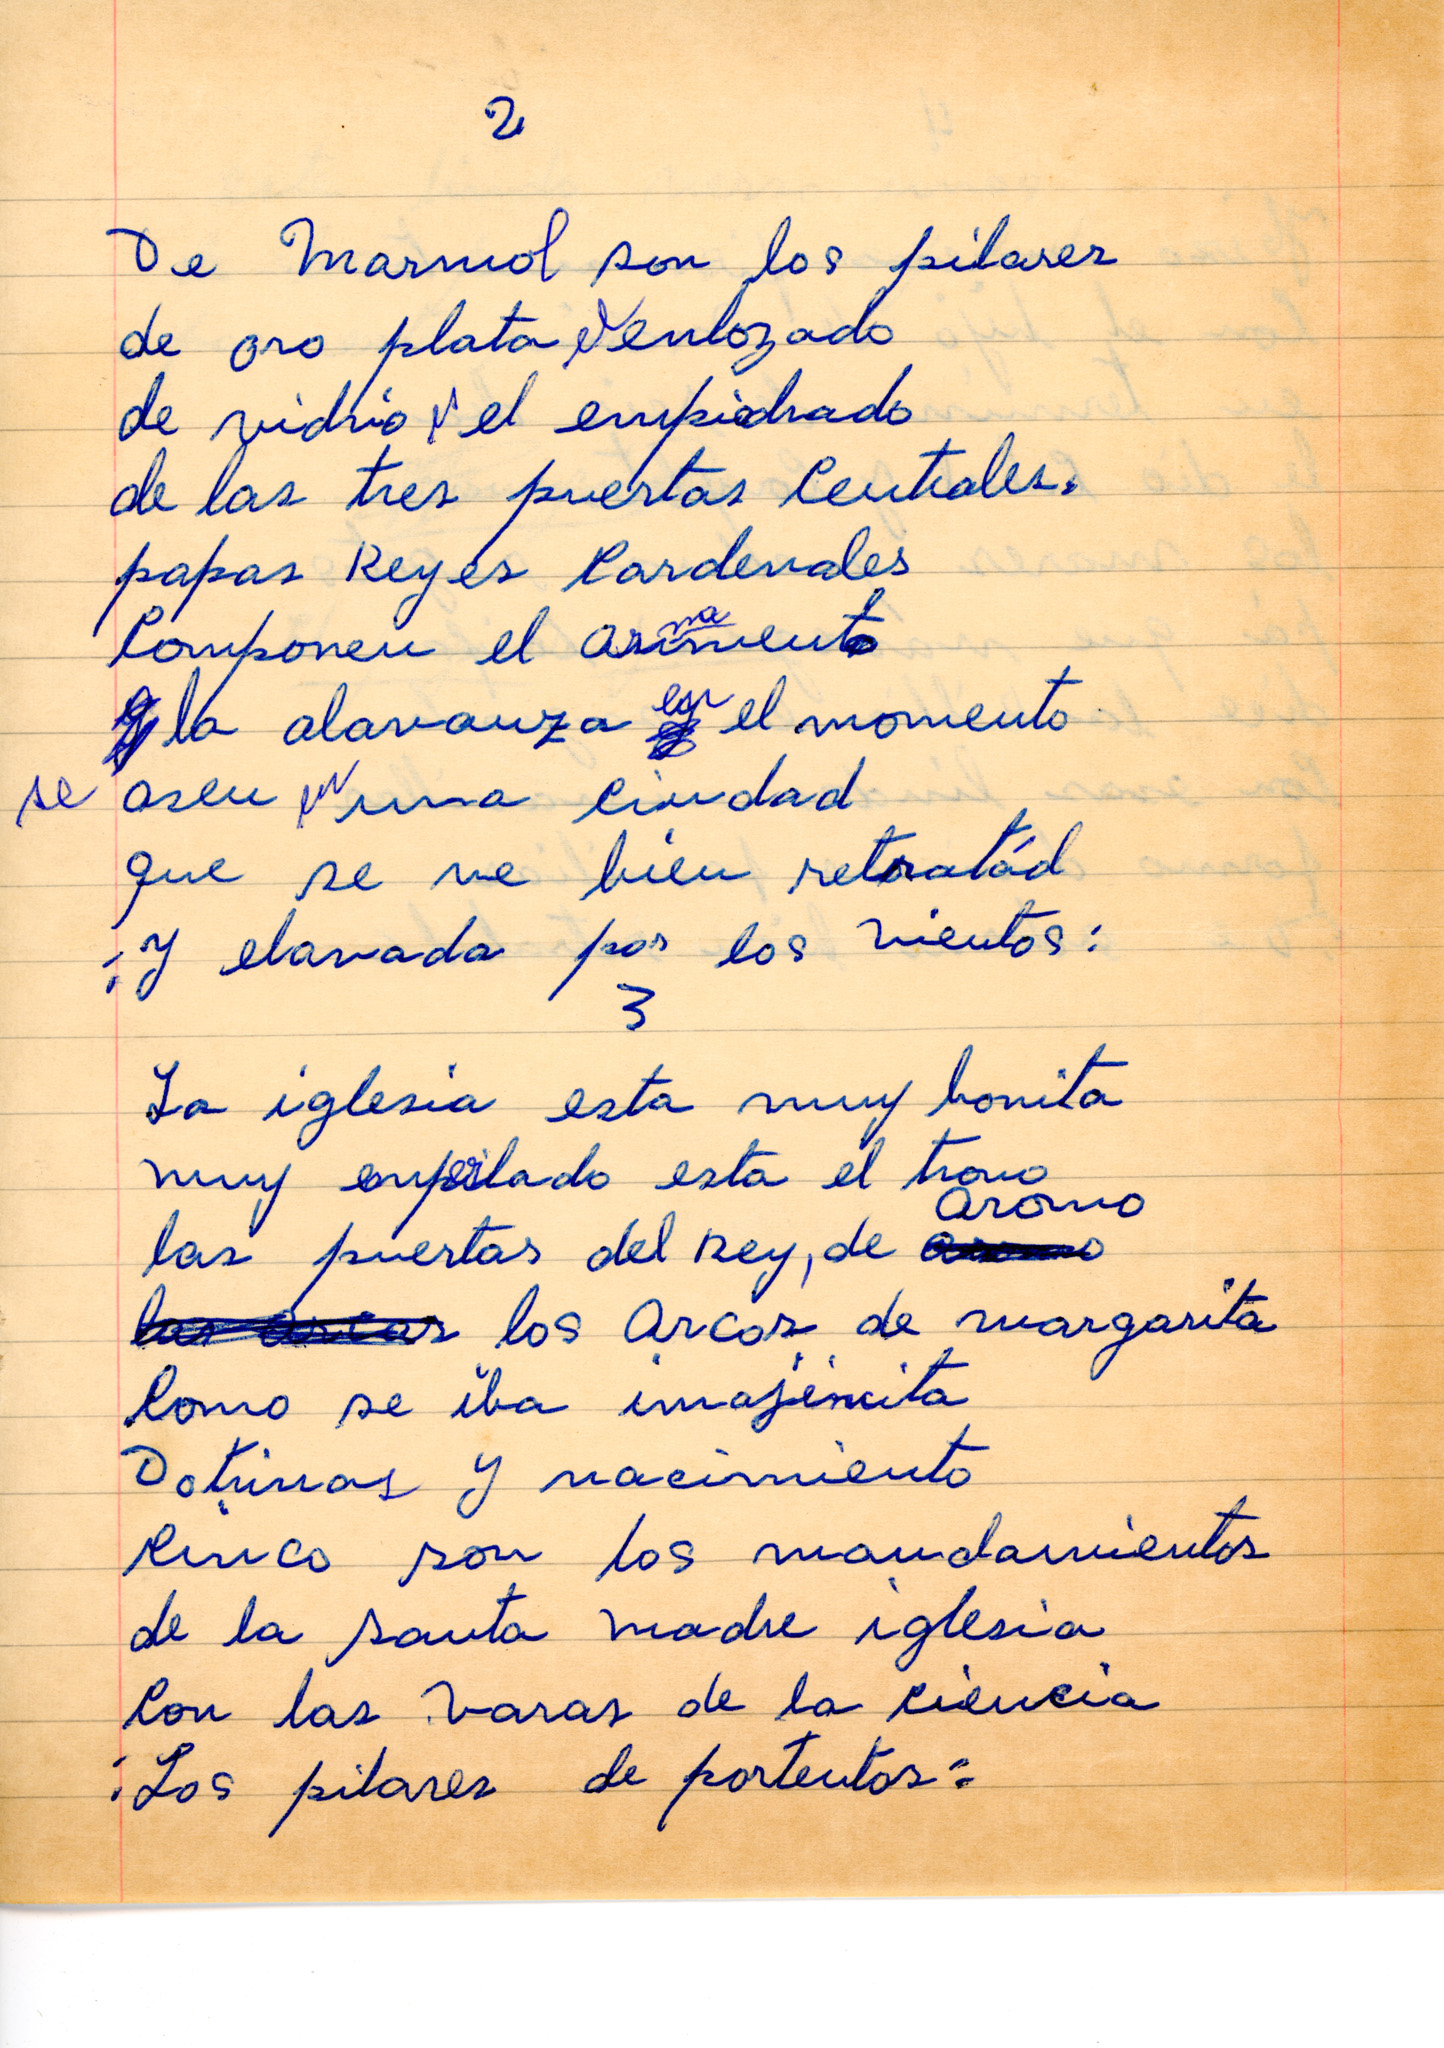 2
De Marmol son los pilares
de oro plata y enlozado
de vidrio y el empiedrado
de las tres puertas Centrales.
papas Reyes Cardenales
Componen el armamento
la alavanza en el momento
se asen una ciudad
que se ve bien retratád
:Y elavada por los vientos:
3
La iglesia esta muy bonita
muy enperilado esta el trono
las puertas del Rey, de aromo
los Arcos de margarita
Como se iba imajencita
Dotrinas y nacimiento
Cinco son los mandamientos
de la santa madre iglesia
Con las varas de la ciencia
:Los pilares de portentos: